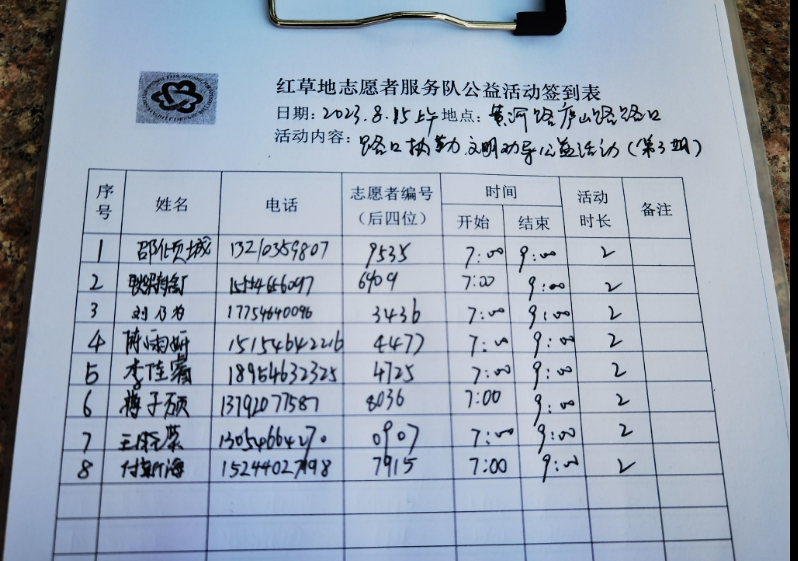 红草地志愿者服务队公益活动签到表
日期：2023.8.15上午 地点：黄河路庐山路路口
活动内容：路口执勤文明劝导公益活动（第3期）
序号 姓名 电话 志愿者编号（后四位） 时间 开始 结束 活动时长 备注
1 邵倾城 13210359807 9535 7:00 9:00 2
2 15154656097 6409 7:00 9:00 2
3 刘乃为 17754640096 3436 7:00 9:00 2
4 陈雨妍 15154642216 4477 7:00 9:00 2
5 李佳蓉 18954632325 4725 7:00 9:00 2
6 子硕 13792077587 8036 7:00 9:00 2
7 13054664270 0907 7:00 9:00 2
8 付新海 15244027498 7915 7:00 9:00 2